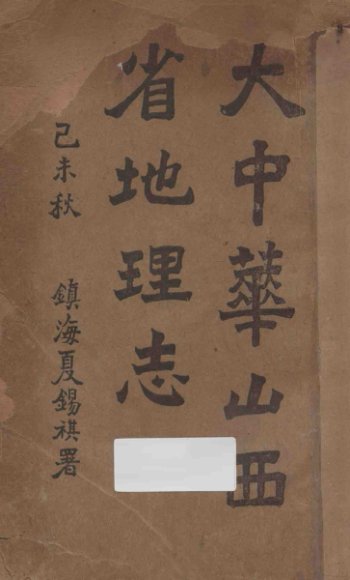 大中華山西
省地理志
己未秋 鎮海夏錫祺署